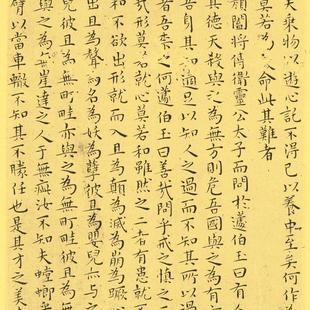 夫乘物以遊心託不得已以養中至矣何作為
莫若為命此其難者
顏闔將傅衛靈公太子而問於蘧伯玉曰有
其德天殺與之為無方則危吾國與之為有方
吾身其知適足以知人之過而不知其所以過
者吾柰之何蘧伯玉曰善哉問乎戒之慎之
哉形莫若就心莫若和雖然之二者有患就
和不欲出形就而入且為顛為滅為崩為蹶
出且為聲為名為妖為孽彼且為嬰兒亦與之
兒彼且為無町畦亦與之為無町畦彼且為
與之為無崖達之入于無疵汝不知夫螳螂乎
臂以當車轍不知其不勝任也是其才之美